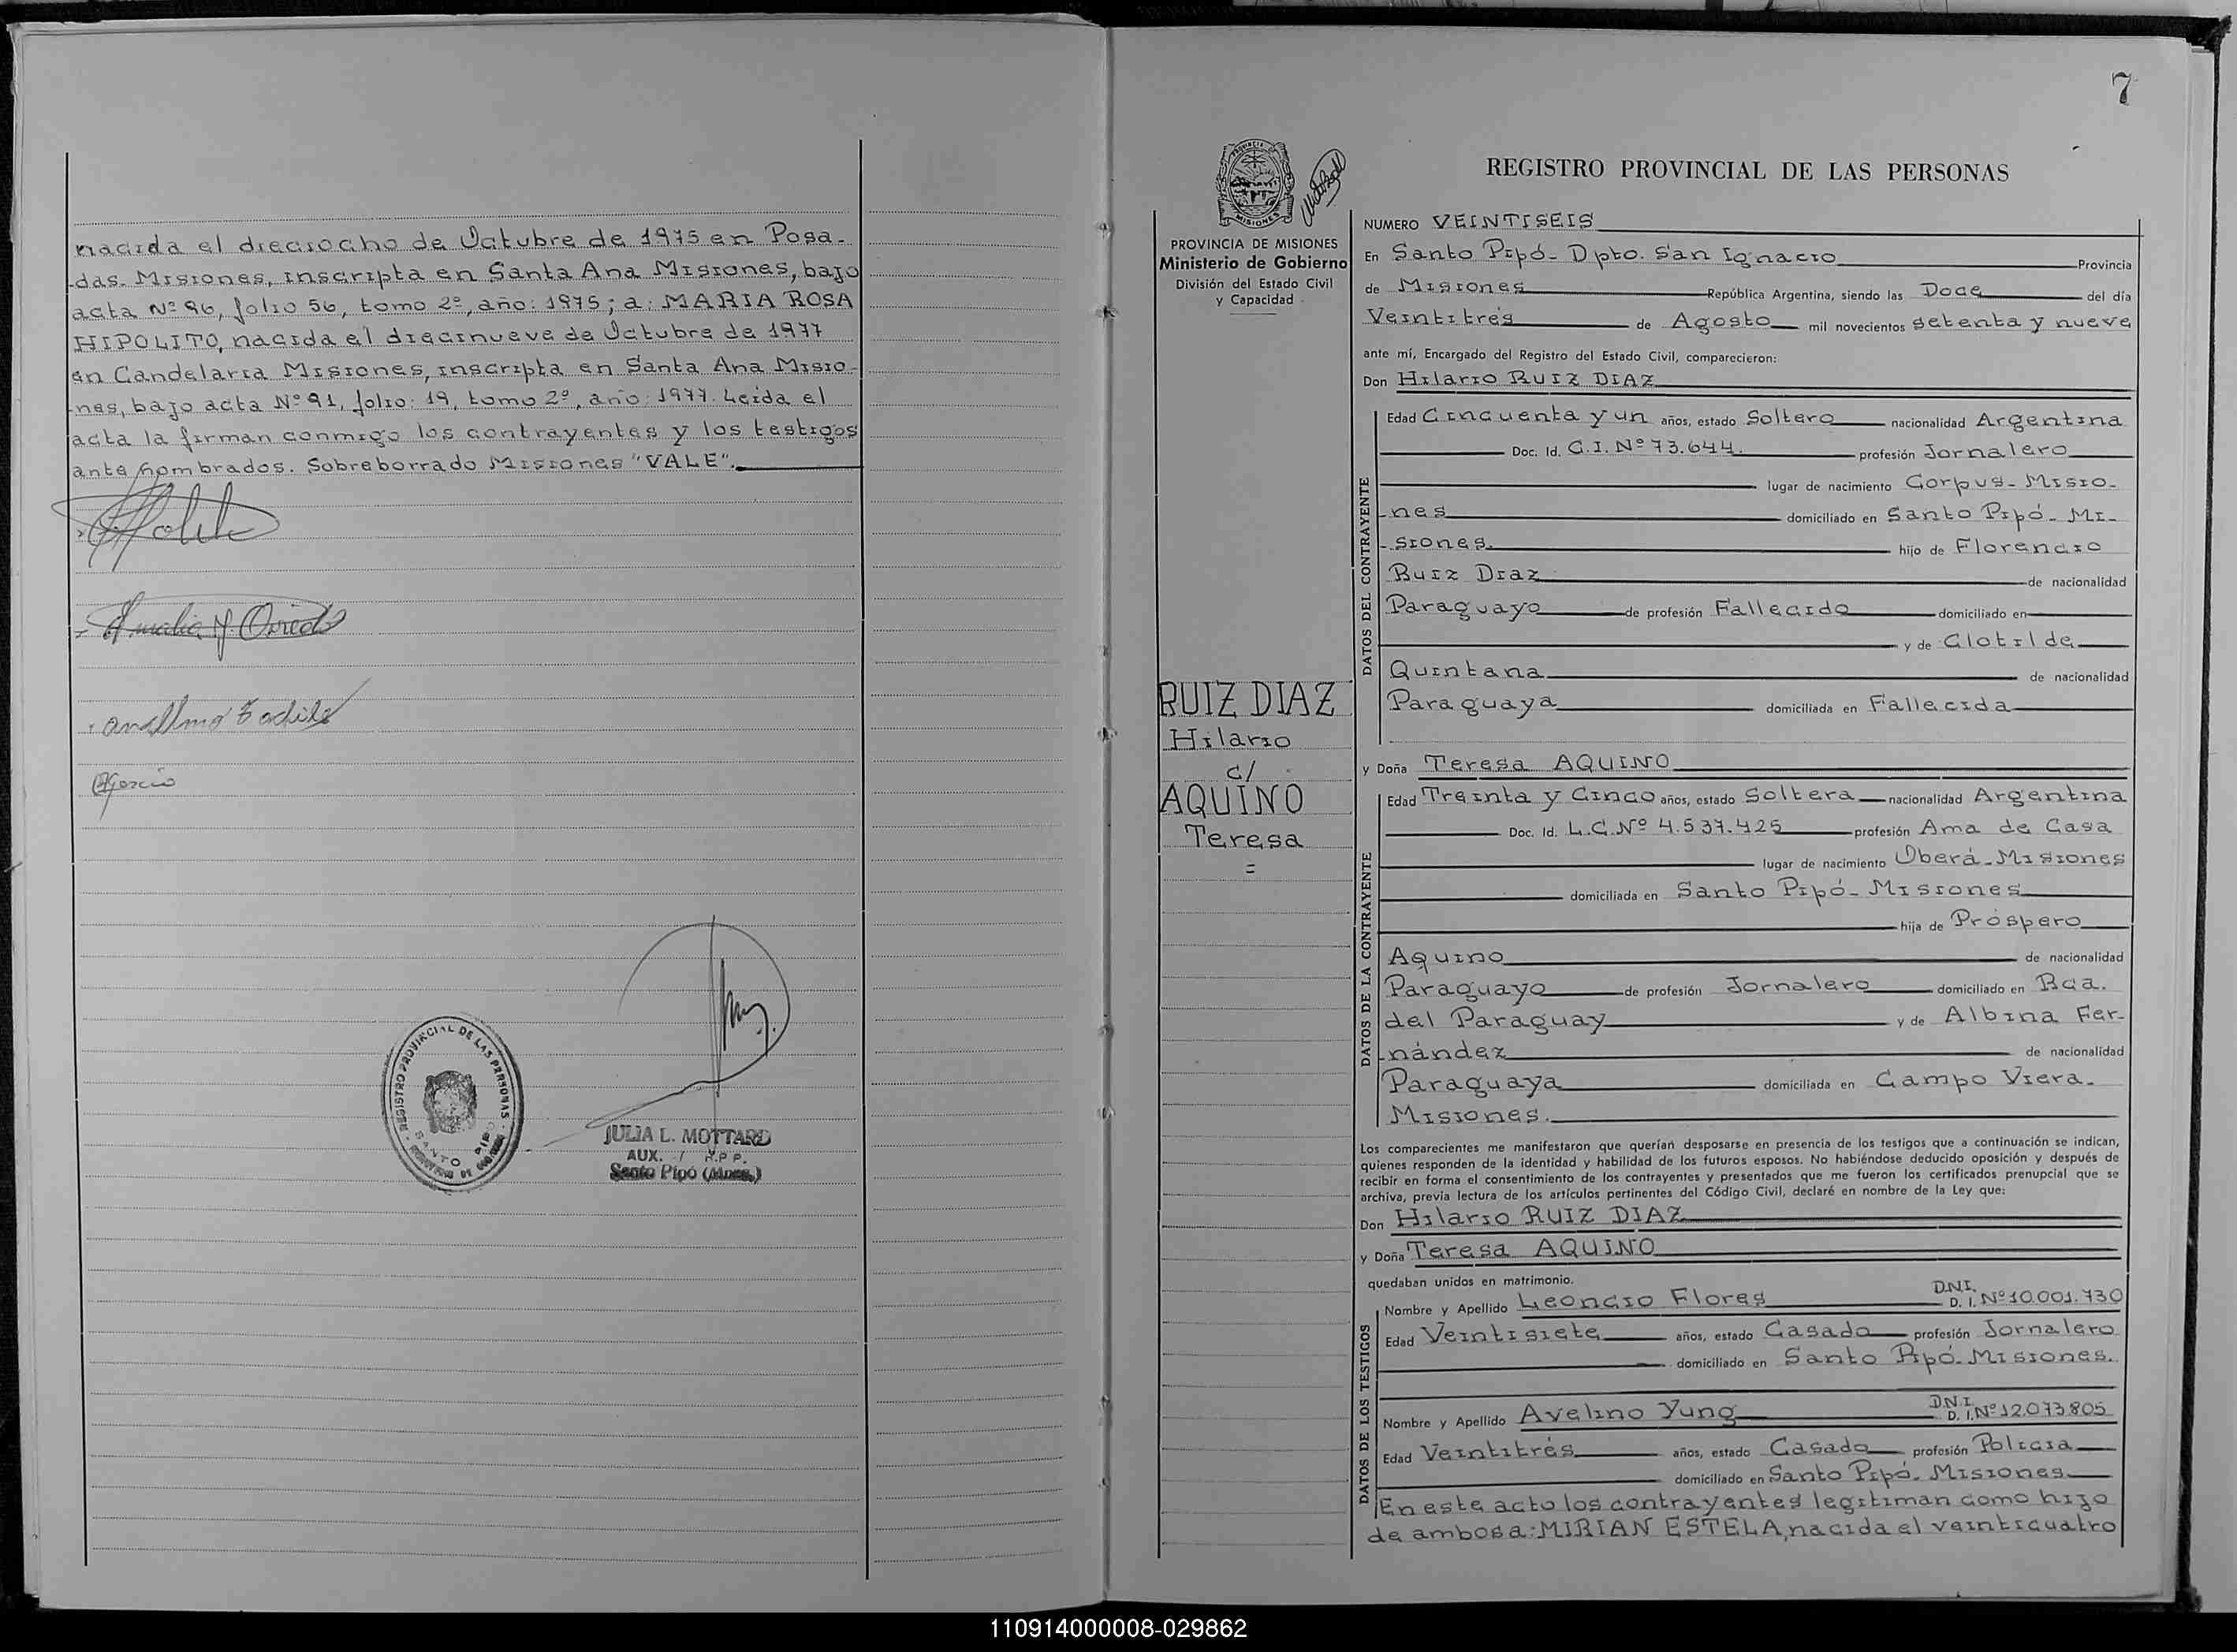 nacida el dieciocho de Octubre de 1975 en Posa-
-das. Misiones, inscripta en Santa Ana Misiones, bajo
acta Nº 96, folio 56, tomo 2º, año: 1975; a: MARIA ROSA
HIPOLITO, nacida el diecinueve de Octubre de 1977
en Candelaria Misiones, inscripta en Santa Ana Misio-
-nes, bajo acta Nº 91, folio: 19, tomo 2º, año: 1977. Leida el
acta la firman conmigo los contrayentes y los testigos
ante nombrados. Sobreborrado Misiones "VALE".
REGISTRO PROVINCIAL DE LAS PERSONAS
SANTO PIPO
JULIA L. MOTTARD
AUX. R.P.P.
Santo Pipó (Mnes.)
7
PROVINCIA DE MISIONES
Ministerio de Gobierno
División del Estado Civil
y Capacidad
RUIZ DIAZ
Hilario
c/
AQUINO
Teresa
=
REGISTRO PROVINCIAL DE LAS PERSONAS
NUMERO VEINTISEIS
En Santo Pipó- Dpto. San Ignacio Provincia
de Misiones República Argentina, siendo las Doce del día
Veintitrés de Agosto mil novecientos setenta y nueve
ante mí, Encargado del Registro del Estado Civil, comparecieron:
Don Hilario RUIZ DIAZ
DATOS DEL CONTRAYENTE
Edad Cincuenta y un años, estado Soltero nacionalidad Argentina
Doc. Id. C.I. Nº 73.644. profesión Jornalero
lugar de nacimiento Corpus- Misio-
-nes domiciliado en Santo Pipó- Mi-
-siones. hijo de Florencio
Ruiz Diaz de nacionalidad
Paraguayo de profesión Fallecido domiciliado en
y de Clotilde
Quintana de nacionalidad
Paraguaya domiciliada en Fallecida
y Doña Teresa AQUINO
DATOS DE LA CONTRAYENTE
Edad Treinta y Cinco años, estado Soltera nacionalidad Argentina
Doc. Id. L.C. Nº 4.537.425 profesión Ama de Casa
lugar de nacimiento Oberá-Misiones
domiciliada en Santo Pipó- Misiones
hija de Próspero
Aquino de nacionalidad
Paraguayo de profesión Jornalero domiciliado en Rca.
del Paraguay y de Albina Fer-
-nández de nacionalidad
Paraguaya domiciliada en Campo Viera.
Misiones.
Los comparecientes me manifestaron que querían desposarse en presencia de los testigos que a continuación se indican,
quienes responden de la identidad y habilidad de los futuros esposos. No habiéndose deducido oposición y después de
recibir en forma el consentimiento de los contrayentes y presentados que me fueron los certificados prenupcial que se
archiva, previa lectura de los artículos pertinentes del Código Civil, declaré en nombre de la Ley que:
Don Hilario RUIZ DIAZ
y Doña Teresa AQUINO
quedaban unidos en matrimonio.
DATOS DE LOS TESTIGOS
Nombre y Apellido Leoncio Flores D.N.I. D. I. Nº 10.001.730
Edad Veintisiete años, estado Casado profesión Jornalero
domiciliado en Santo Pipó- Misiones.
Nombre y Apellido Avelino Yung D.N.I. D. I. Nº 12.073.805
Edad Veintitrés años, estado Casado profesión Policia
domiciliado en Santo Pipó- Misiones
En este acto los contrayentes legitiman como hijo
de ambos a: MIRIAN ESTELA, nacida el veinticuatro
110914000008-029862